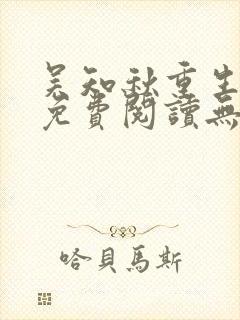 吴知秋重生
免費閱讀無
哈貝馬斯